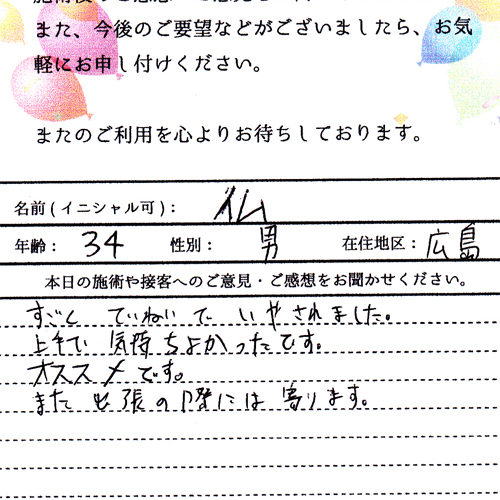 また、今後のご要望などがございましたら、お気
軽にお申し付けください。
またのご利用を心よりお待ちしております。
名前(イニシャル可): 仏
年齢: 34 性別: 男 在住地区: 広島
本日の施術や接客へのご意見・ご感想をお聞かせください。
すごく ていねいで いやされました。
上手で 気持ちよかったです。
オススメです。
また 出張の際には 寄ります。